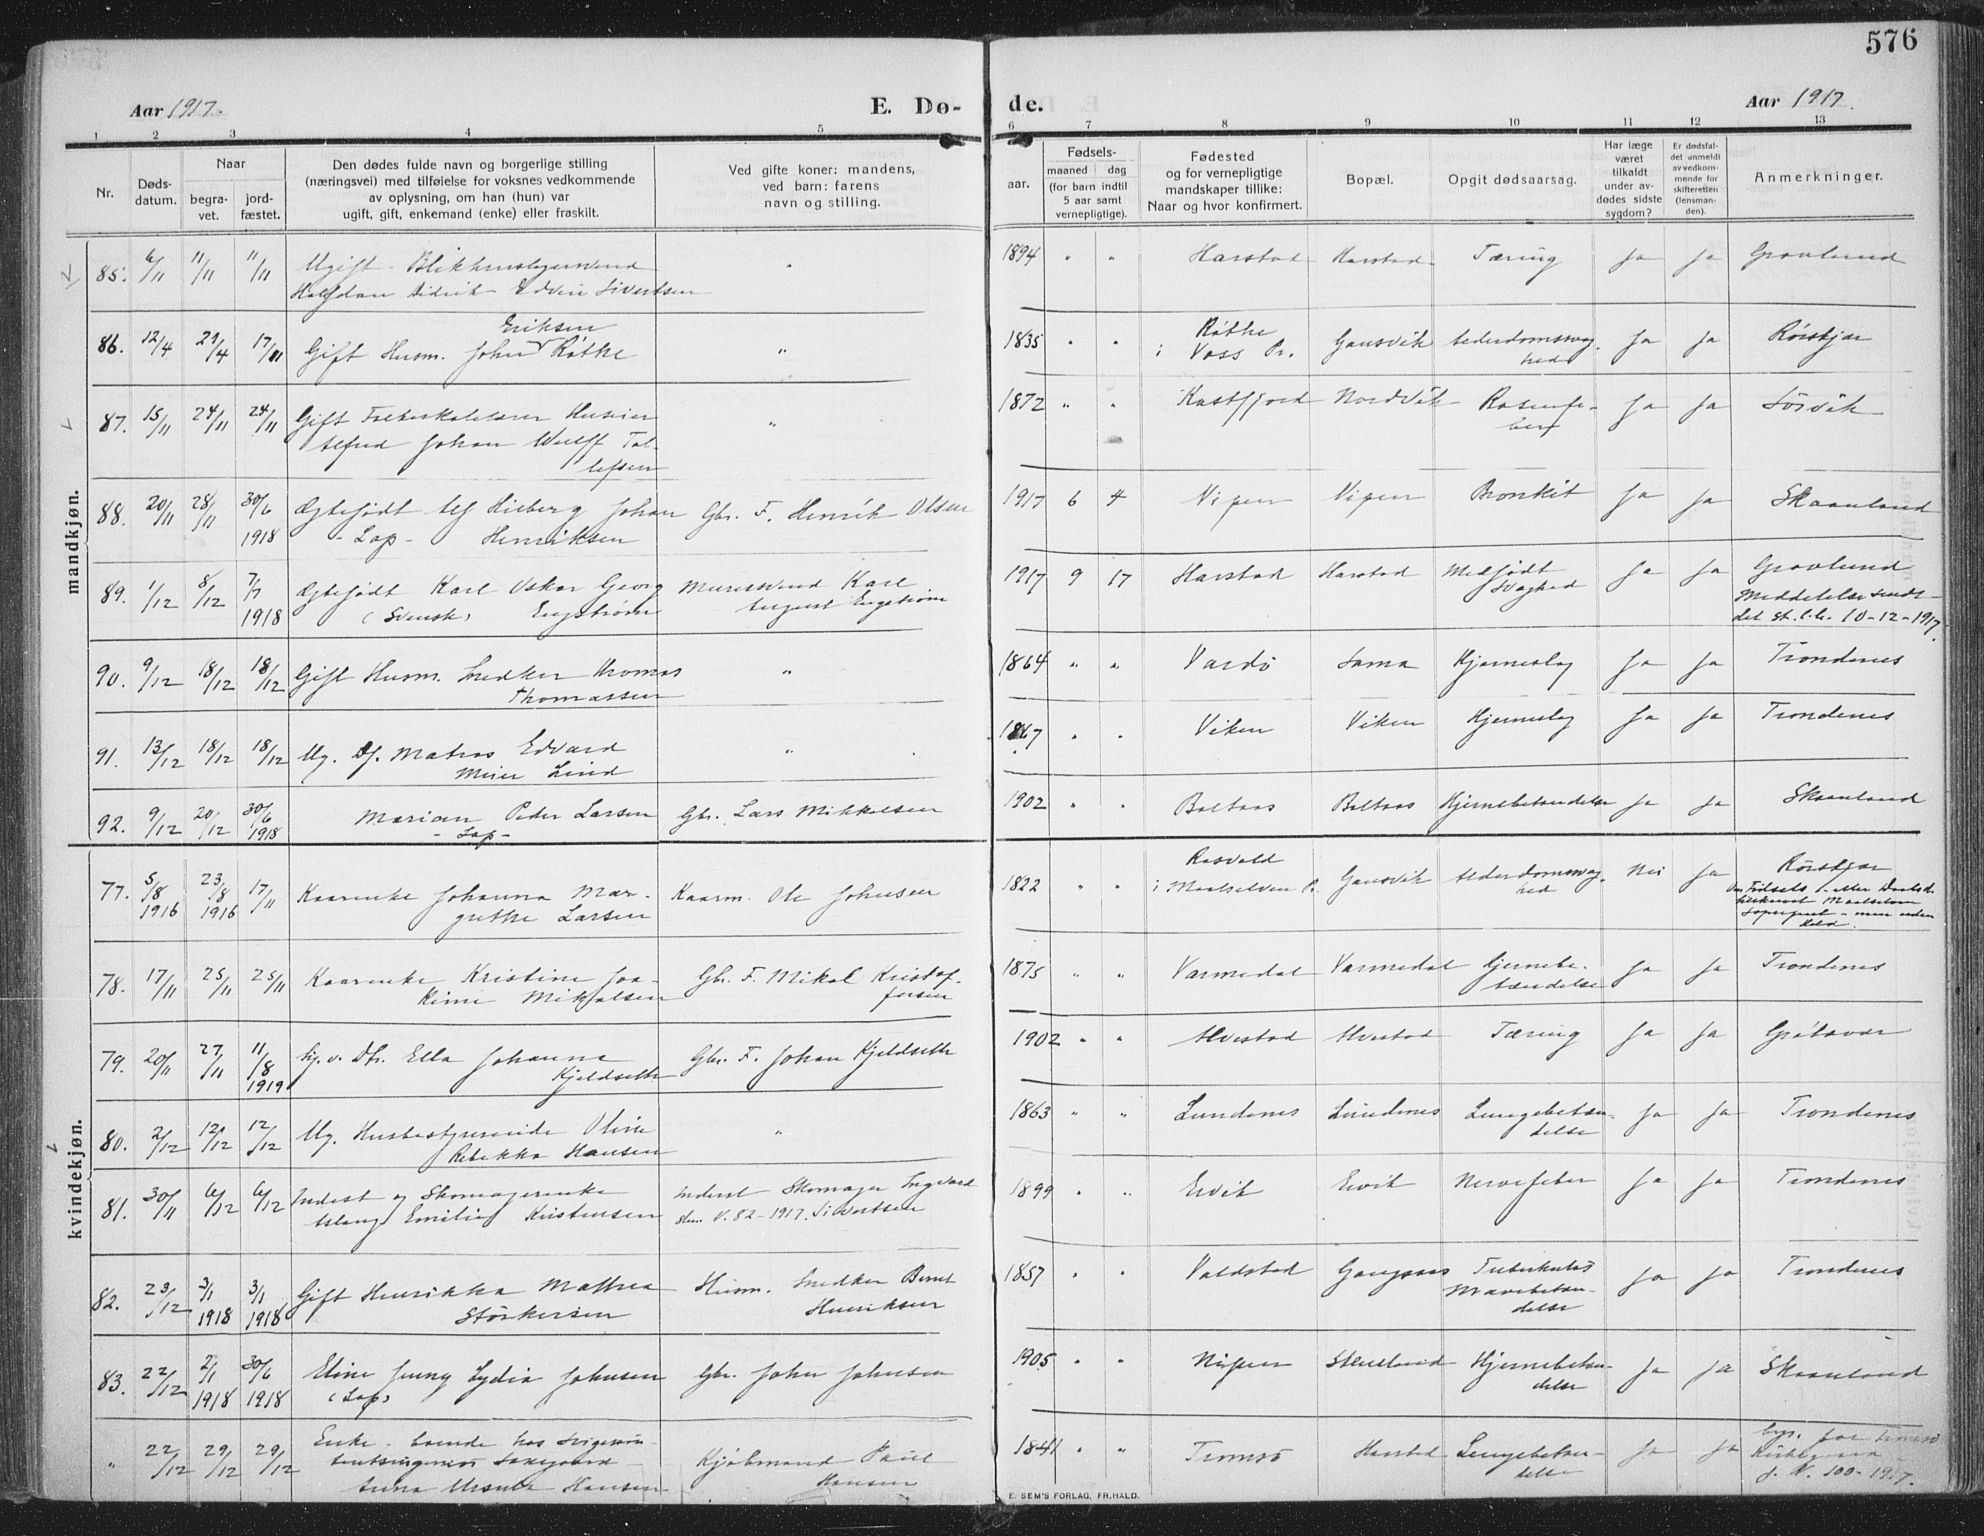 576
Aar 1917.
E. Dø-
de.
Aar 1917.
1 2 3 4 5 6 7 8 9 10 11 12 13
Nr.
Døds-
datum.
Naar
begra-
vet.
jord-
fæstet.
Den dødes fulde navn og borgerlige stilling
(næringsvei) med tilføielse for voksnes vedkommende
av oplysning, om han (hun) var
ugift, gift, enkemand (enke) eller fraskilt.
Ved gifte koner: mandens,
ved barn: farens
navn og stilling.
Fødsels-
aar.
maaned dag
(for barn indtil
5 aar samt
vernepligtige).
Fødested
og for vernepligtige
mandskaper tillike:
Naar og hvor konfirmert.
Bopæl.
Opgit dødsaarsag.
Har læge
været
tilkaldt
under av-
dødes sidste
sygdom?
Er dødsfal-
det anmeldt
av vedkom-
mende for
skifteretten
(lensman-
den).
Anmerkninger.
mandkjøn.
85. 6/11 11/11 11/11 Ugift
Halfdan Didrik Edvin Sivertsen
" 1894 " " Harstad Harstad Tæring Ja Ja Gravlund
Eriksen
86. 12/4 21/4 17/11 Gift Husm. John Røthe
" 1835 " " Røthe
i Voss Pr. Gausvik Alderdomssvag-
hed Ja Ja Rørskjær
87. 15/11 24/11 24/11 Gift
Alfred Johan Wulff Tol-
lefsen
" 1872 " " Kastfjord Nordvik Ja Ja Sørvik
88. 20/11 28/11 30/6
1918 Ægtefødt Alf Hilberg Johan
- Lap - Henriksen
Gbr. F. Henrik Olsen
1917 6 4 Vipen Vipen Bronkit Ja Ja Skaanland
89. 1/12 8/12 7/7
1918 Ægtefødt Karl Oskar Georg
(Svensk) Engstrøm
Murersvend Karl
August Engstrøm
1917 9 17 Harstad Harstad Medfødt
Svaghed Ja Ja Gravlund
Meddelelse sendt
det st. c.b. 10-12-1917.
90. 9/12 18/12 18/12 Gift Husm. Snedker Thomas
Thomassen
" 1864 " " Vardø Sama Hjerneslag Ja Ja Trondenes
91. 13/12 18/12 18/12 Ug. Df. Matros Edvard
Meier Lind
" 1867 " " Viken Viken Hjerneslag Ja Ja Trondenes
92. 9/12 20/12 30/6
1918 Marian Peder Larsen
- Lap -
Gbr. Lars Mikkelsen
1902 " " Boltaas Boltaas Hjernebetændelse Ja Ja Skaanland
kvindekjøn.
77. 5/8
1916 23/8
1916 17/11 Kaarenke Johanna Mar-
grethe Larsen
Kaarm. Ole Johnsen
1822 " " Rosvold
i Maalselven Pr. Gausvik Alderdomssvag-
hed Nei Ja Rørskjær
78. 17/11 25/11 25/11 Kaarenke Kristine Joa-
kime Mikalsen
Gbr. F. Mikal Kristof-
fersen
1875 " " Varmedal Varmedal Hjernebe-
tændelse Ja Ja Trondenes
79. 20/11 27/11 11/8
1919 Ella Johanna
Kjeldseth
Gbr. F. Johan Kjeldseth
1902 " " Alvestad Alvestad Tæring Ja Ja Grøtavær
80. 2/12 12/12 12/12 Ug. Husbestyrerinde Oline
Rebekka Hansen
" 1863 " " Lundenes Lundenes Lungebetæn-
delse Ja Ja Trondenes
81. 30/11 6/12 6/12 Inderst og Skomagerenke
Aslaug Emilie Kristensen
Inderst Skomager Ingvard
N. 82-1917. Sivertsen
1899 " " Ervik Ervik Nervefeber Ja Ja Trondenes
82. 23/12 3/1
1918 3/1
1918 Gift Henrikka Mathea
Størkersen
Husm. Snedker Bernt
Henriksen
1857 " " Voldstad Gangsaas Tuberkuløs
Mavebetæn-
delse Ja Ja Trondenes
83. 22/12 2/1
1918 30/6
1918 Eline Jenny Lydia Johnsen
(Lap)
Gbr. John Johnsen
1905 " " Nipen Stensland Hjernebetæn-
delse Ja Ja Skaanland
" 22/12 29/12 29/12 Enke boende hos
Anna Ursula Hansen
Kjøbmand Paul
Hansen
1841 " " Tromsø Harstad Lungebetæn-
delse Ja Ja
J. N. 109-1917.
E. SEM'S FORLAG, FR.HALD.